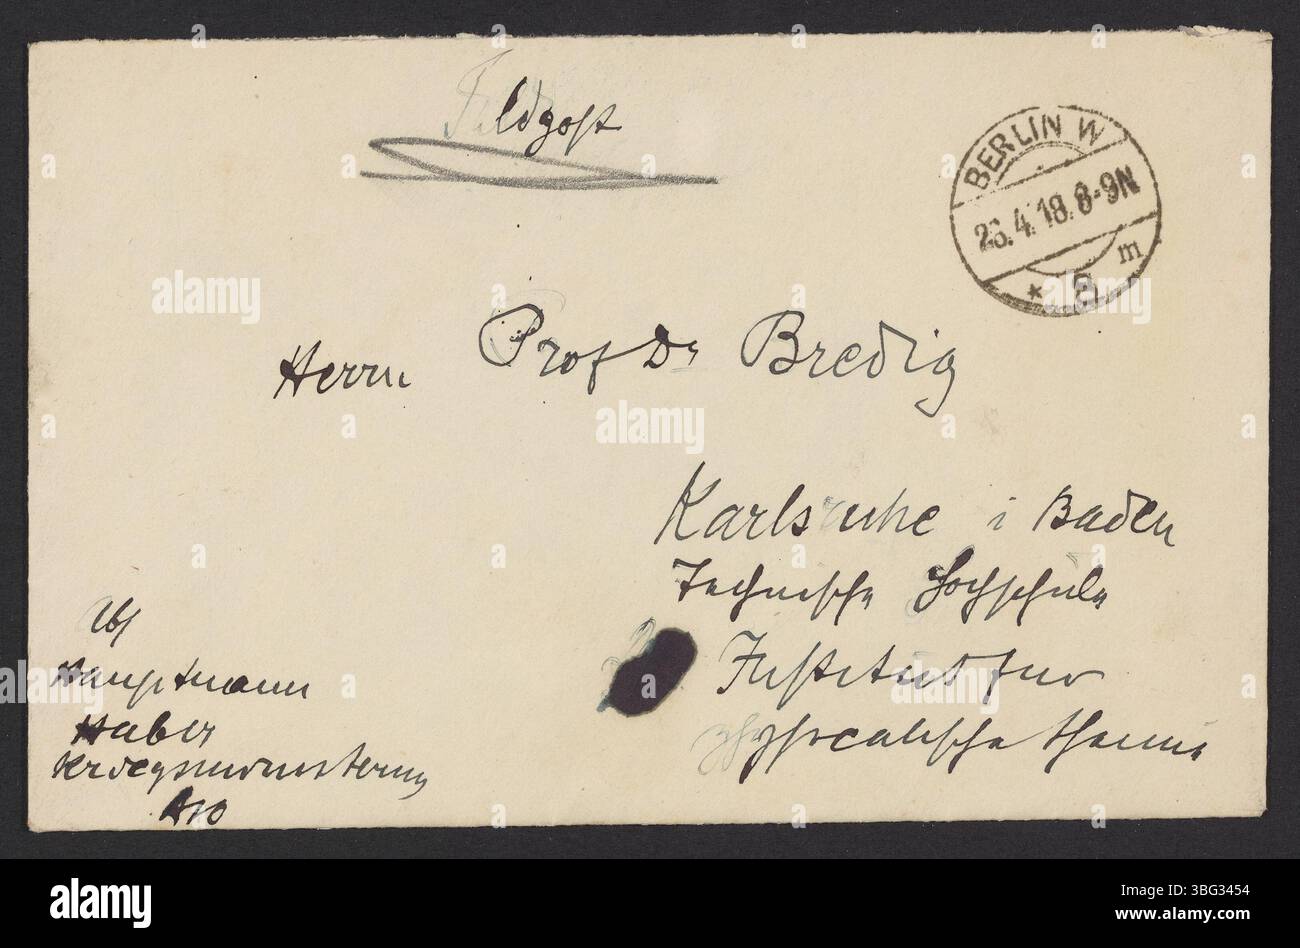 Feldpost
BERLIN W
26.4.18.8-9N
* 8 m
Herrn Prof Dr Bredig
Karlsruhe i Baden
Technische Hochschule
Institut für
physicalische Chemie
Abs
Hauptmann
Haber
Kriegsministerium
A10
alamy
Image ID: 3BG3454
www.alamy.com